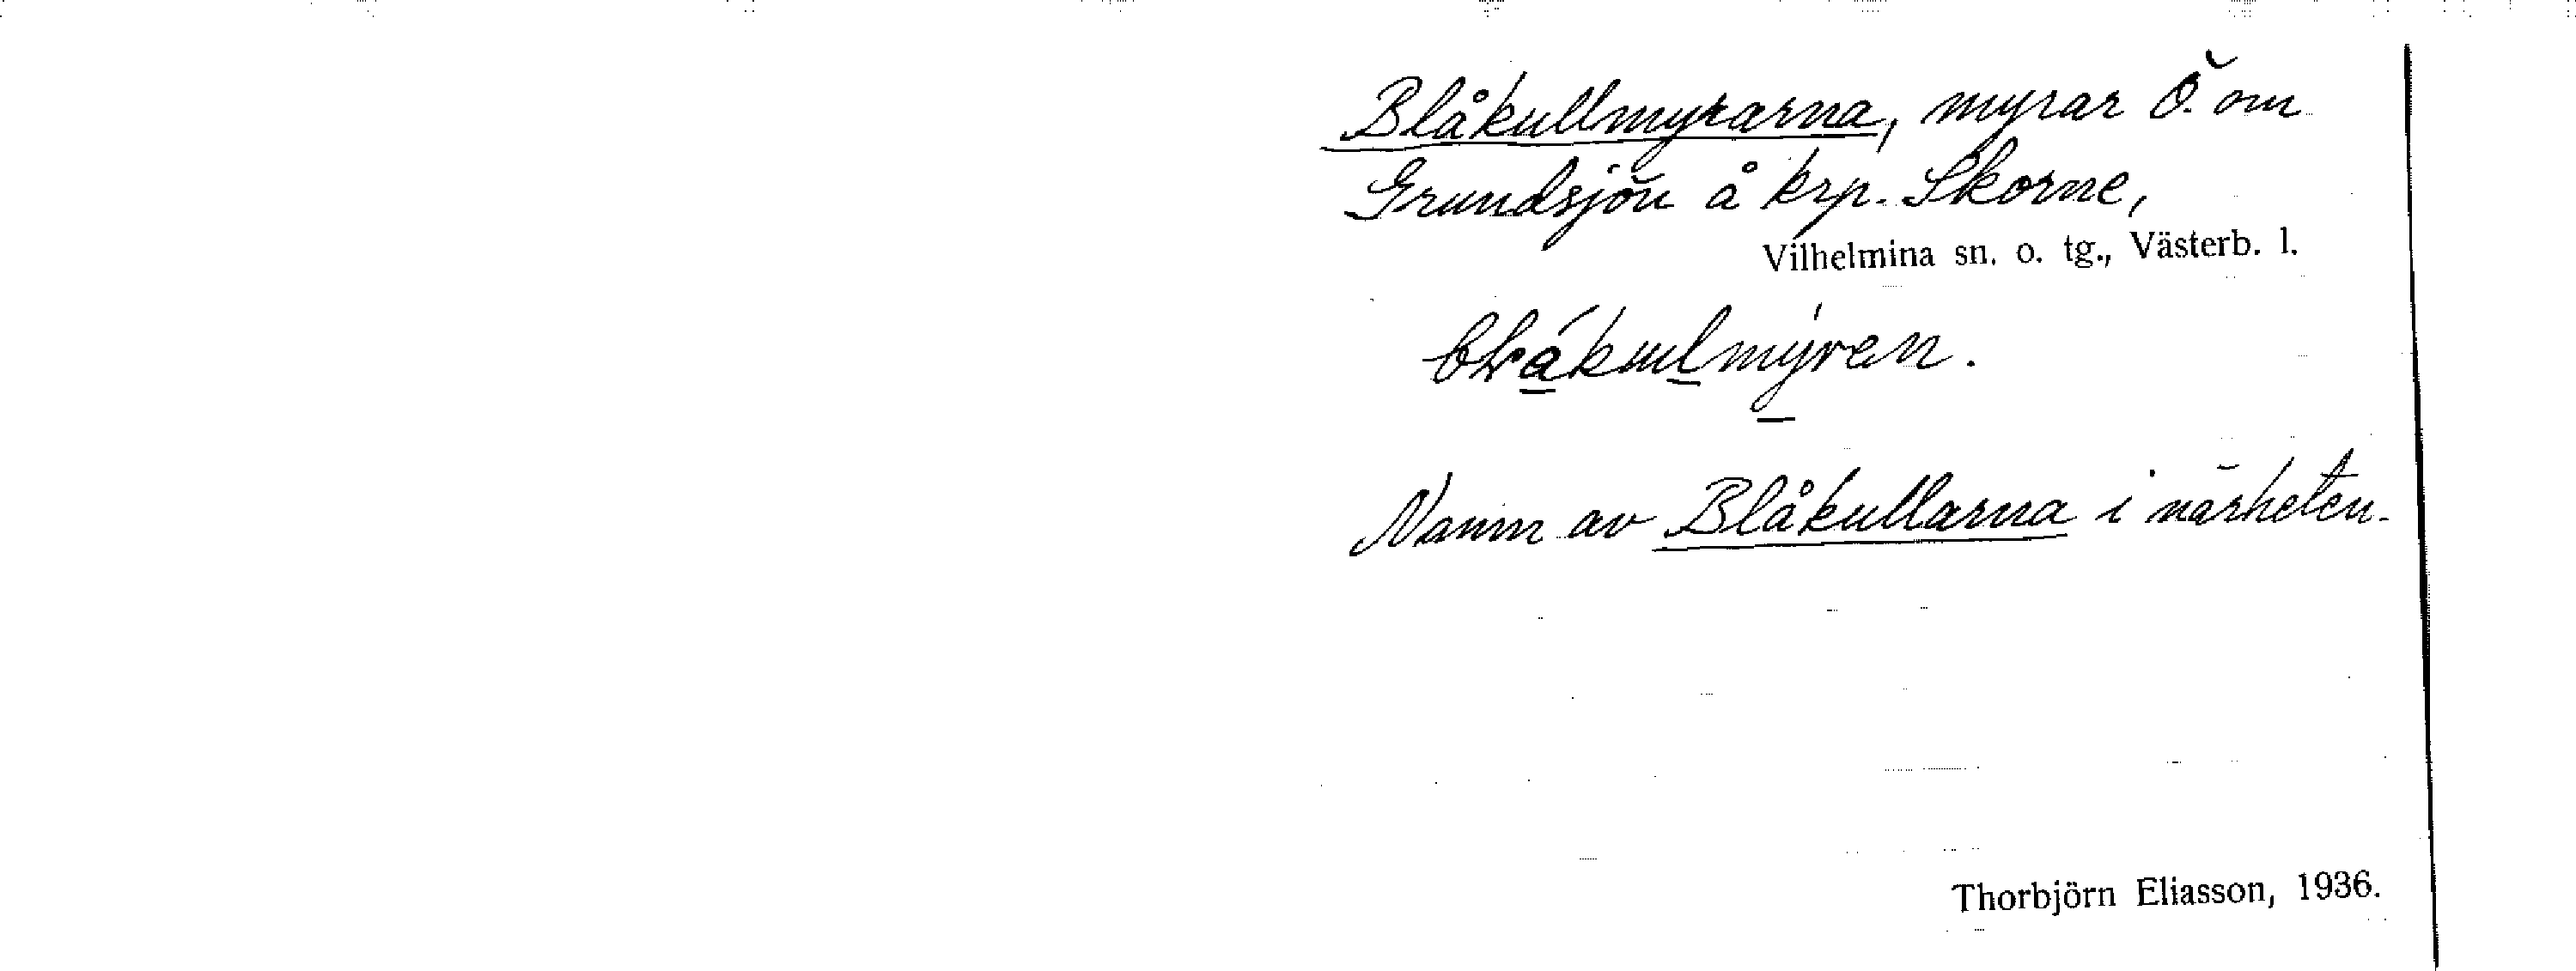 Blåkullmyrarna, myrar Ö. om
Grundsjön å krp. Skorne,
Vilhelmina sn. o. tg., Västerb. l.
Namn av Blåkullarna i närheten.
Thorbjörn Eliasson, 1936.